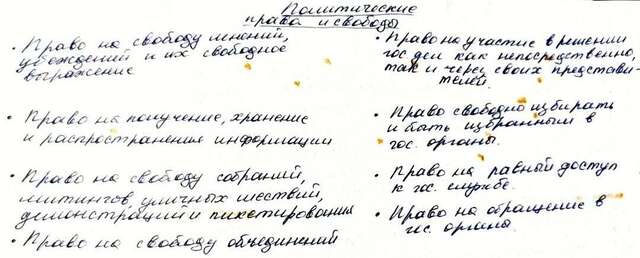 Политические
права и свободы
• Право на свободу мнений,
убеждений и их свободное
выражение
• Право на получение, хранение
и распространения информации
• Право на свободу собраний,
митингов, уличных шествий,
демонстрации и пикетирования
• Право на свободу объединений
• Право на участие в решении
гос дел как непосредственно,
так и через своих представи-
телей.
• Право свободно избирать
и быть избранным в
гос. органы.
• Право на равный доступ
к гос. службе.
• Право на обращение в
гос. органы.